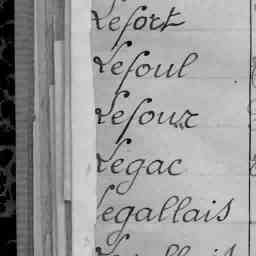 Lefort
Lefoul
Lefour
Legac
Legallais